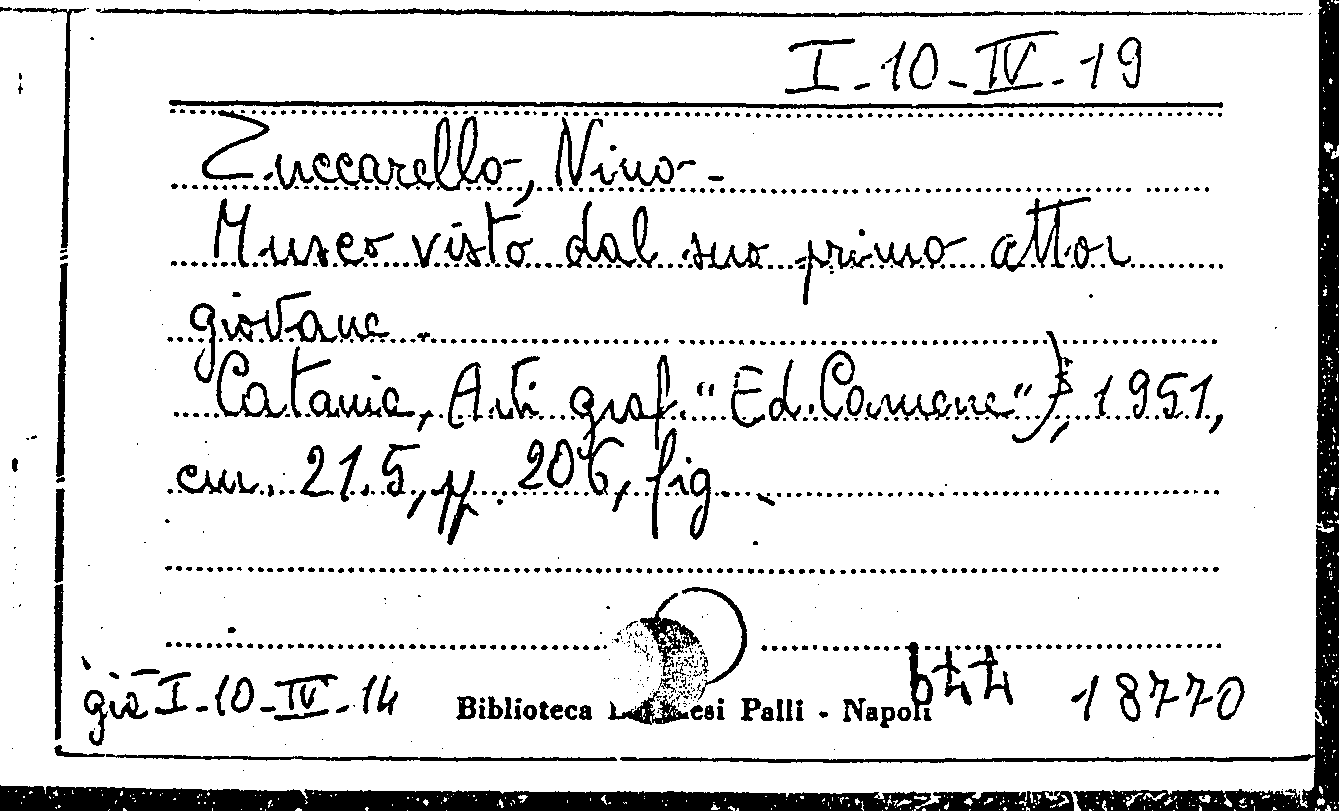 I-10-IV-19
Zuccarello, Nino-
Musco visto dal suo primo attor
giovane.
Catania, Arti graf. "Ed. Camene"), 1951,
cm. 21.5, pp. 206, fig.
già I-10-IV-14 Biblioteca Palli - Napoli 18770